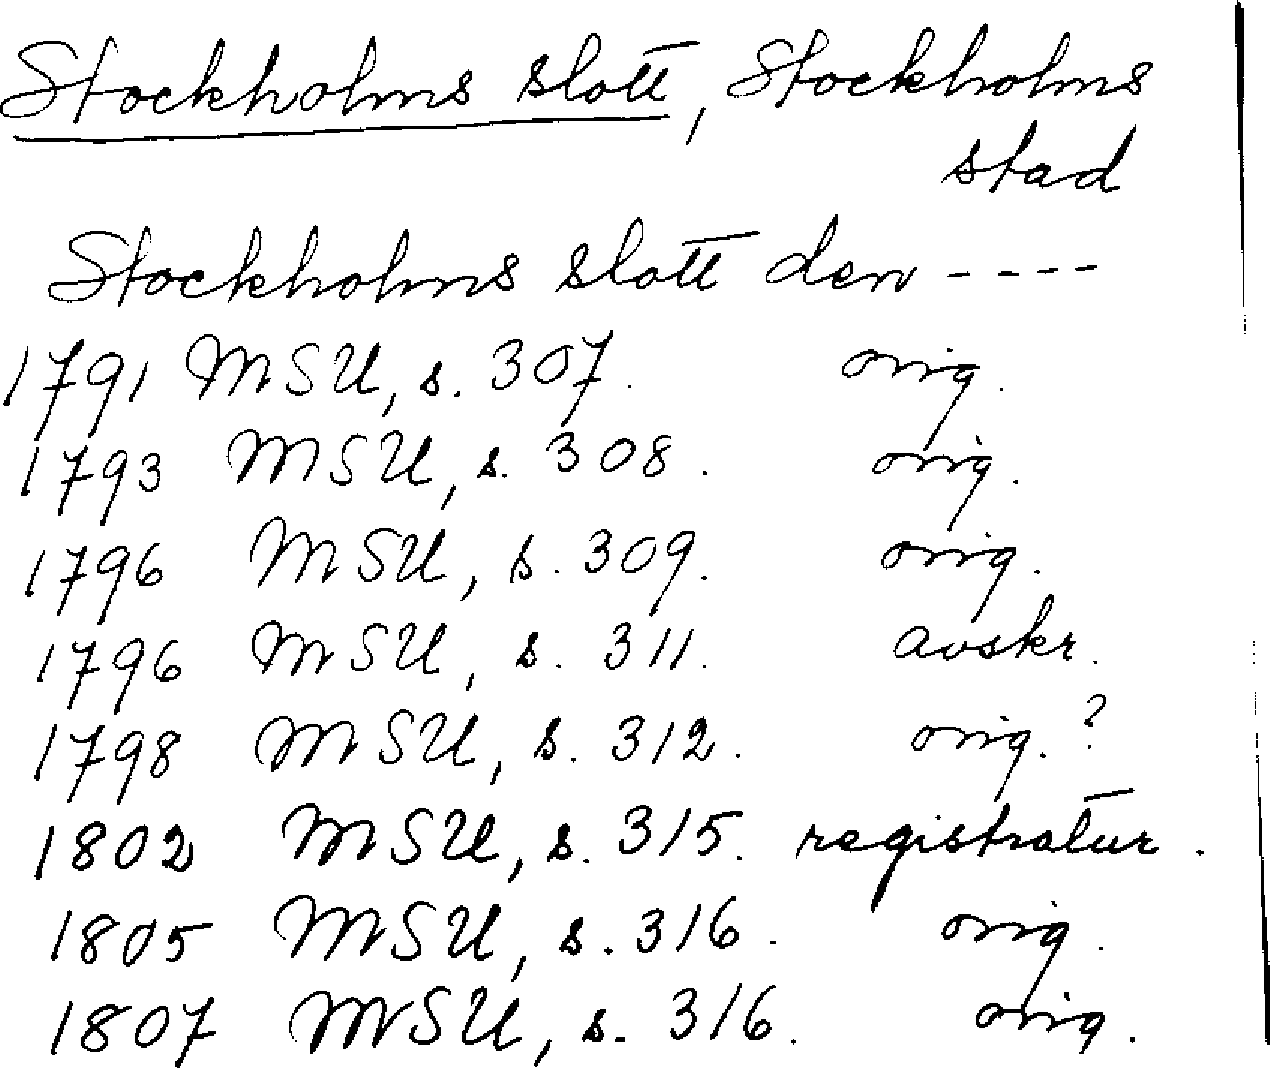 Stockholms slott, Stockholms
stad
Stockholms slott den ----
1791 MSU, s. 307. orig.
1793 MSU, s. 308. orig.
1796 MSU, s. 309. orig.
1796 MSU, s. 311. avskr.
1798 MSU, s. 312. orig.?
1802 MSU, s. 315. registratur.
1805 MSU, s. 316. orig.
1807 MSU, s. 316. orig.